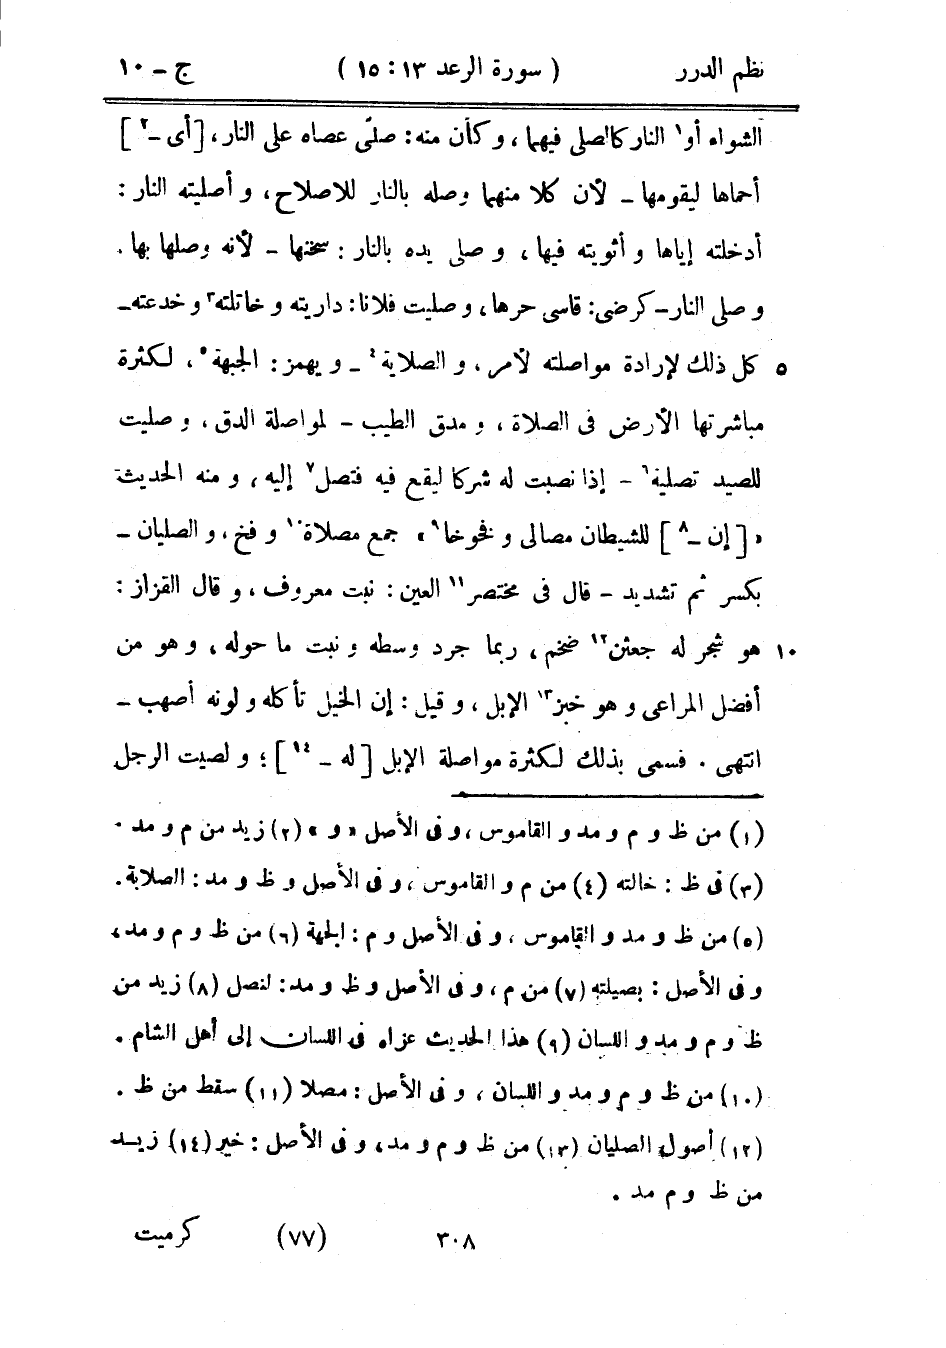 نظم الدرر ( سورة الرعد ١٣ : ١٥ ) ج ــ ١٠
الشواء أو١ النار كالصلى فيهما ، و كأن منه : صلّى عصاه على النار ، [ أى ــ٢ ]
أحماها ليقومها ــ لأن كلا منهما وصله بالنار للاصلاح ، و أصليته النار :
أدخلته إياها و أثويته فيها ، و صلى يده بالنار : سخنها ــ لأنه وصلها بها .
و صلى النار ــ كرضى : قاسى حرها ، و صليت فلانا : داريته و خاتلته٣ و خدعته ــ
٥ كل ذلك لإرادة مواصلته لأمر ، و الصلاية٤ ــ و يهمز : الجبهة٥ ، لكثرة
مباشرتها الأرض فى الصلاة ، و مدق الطيب ــ لمواصلة الدق ، و صليت
للصيد تصلية٦ ــ إذا نصبت له شركا ليقع فيه فتصل٧ إليه ، و منه الحديث
« [ إن ــ٨ ] للشيطان مصالى و فخوخا٩ » جمع مصلاة١٠ و فخ ، و الصليان ــ
بكسر ثم تشديد ــ قال فى مختصر١١ العين : نبت معروف ، و قال القزاز :
١٠ هو شجر له جعثن١٢ ضخم ، ربما جرد وسطه و نبت ما حوله ، و هو من
أفضل المراعى و هو خبز١٣ الإبل ، و قيل : إن الخيل تأكله و لونه أصهب ــ
انتهى . فسمى بذلك لكثرة مواصلة الإبل [ له ــ ١٤ ] ؛ و لصيت الرجل
(١) من ظ و م و مد و القاموس ، و فى الأصل « و » (٢) زيد من م و مد .
(٣) فى ظ : خالته (٤) من م و القاموس ، و فى الأصل و ظ و مد : الصلابة .
(٥) من ظ و مد و القاموس ، و فى الأصل و م : الجهة (٦) من ظ و م و مد ،
و فى الأصل : بصيلته (٧) من م ، و فى الأصل و ظ و مد : لنصل (٨) زيد من
ظ و م و مد و اللسان (٩) هذا الحديث عزاه فى اللسان إلى أهل الشام .
(١٠) من ظ و م و مد و اللسان ، و فى الأصل : مصلا (١١) سقط من ظ .
(١٢) أصول الصليان (١٣) من ظ و م و مد ، و فى الأصل : خير (١٤) زيد
من ظ و م مد .
٣٠٨ (٧٧) كرميت